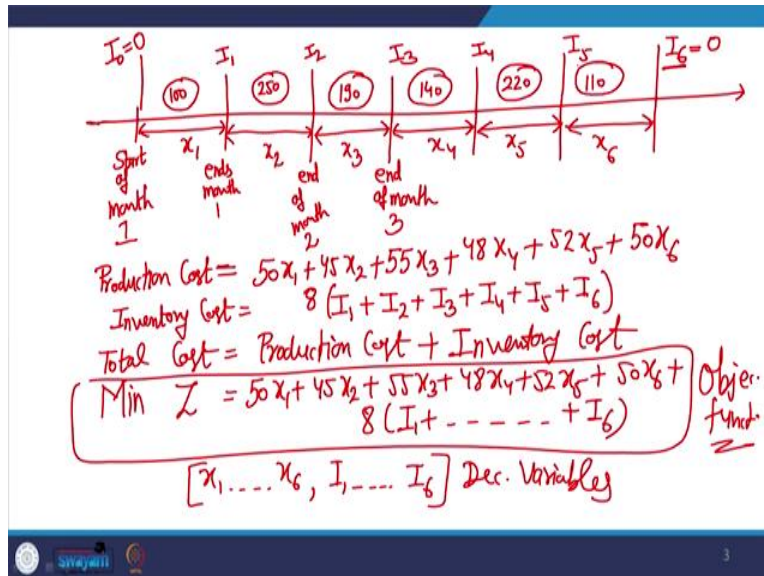 I₀=0 I₁ I₂ I₃ I₄ I₅ I₆=0
100 250 190 140 220 110
x₁ x₂ x₃ x₄ x₅ x₆
Start of month 1
ends month 1
end of month 2
end of month 3
Production Cost = 50x₁+45x₂+55x₃+48x₄+52x₅+50x₆
Inventory Cost = 8(I₁+I₂+I₃+I₄+I₅+I₆)
Total Cost = Production Cost + Inventory Cost
Min Z = 50x₁+45x₂+55x₃+48x₄+52x₅+50x₆+
8(I₁+ - - - - - - +I₆)
Objec. funct.
[x₁....x₆, I₁.... I₆] Dec. Variables
swayam
3